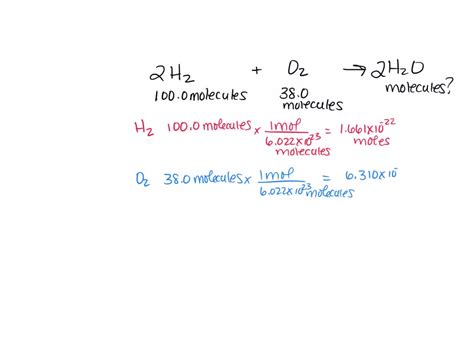 2H₂ + O₂ → 2H₂O
100.0 molecules 38.0 molecules molecules?
H₂ 100.0 molecules × 1 mol / 6.022×10²³ molecules = 1.661×10⁻²² moles
O₂ 38.0 molecules × 1 mol / 6.022×10²³ molecules = 6.310×10⁻